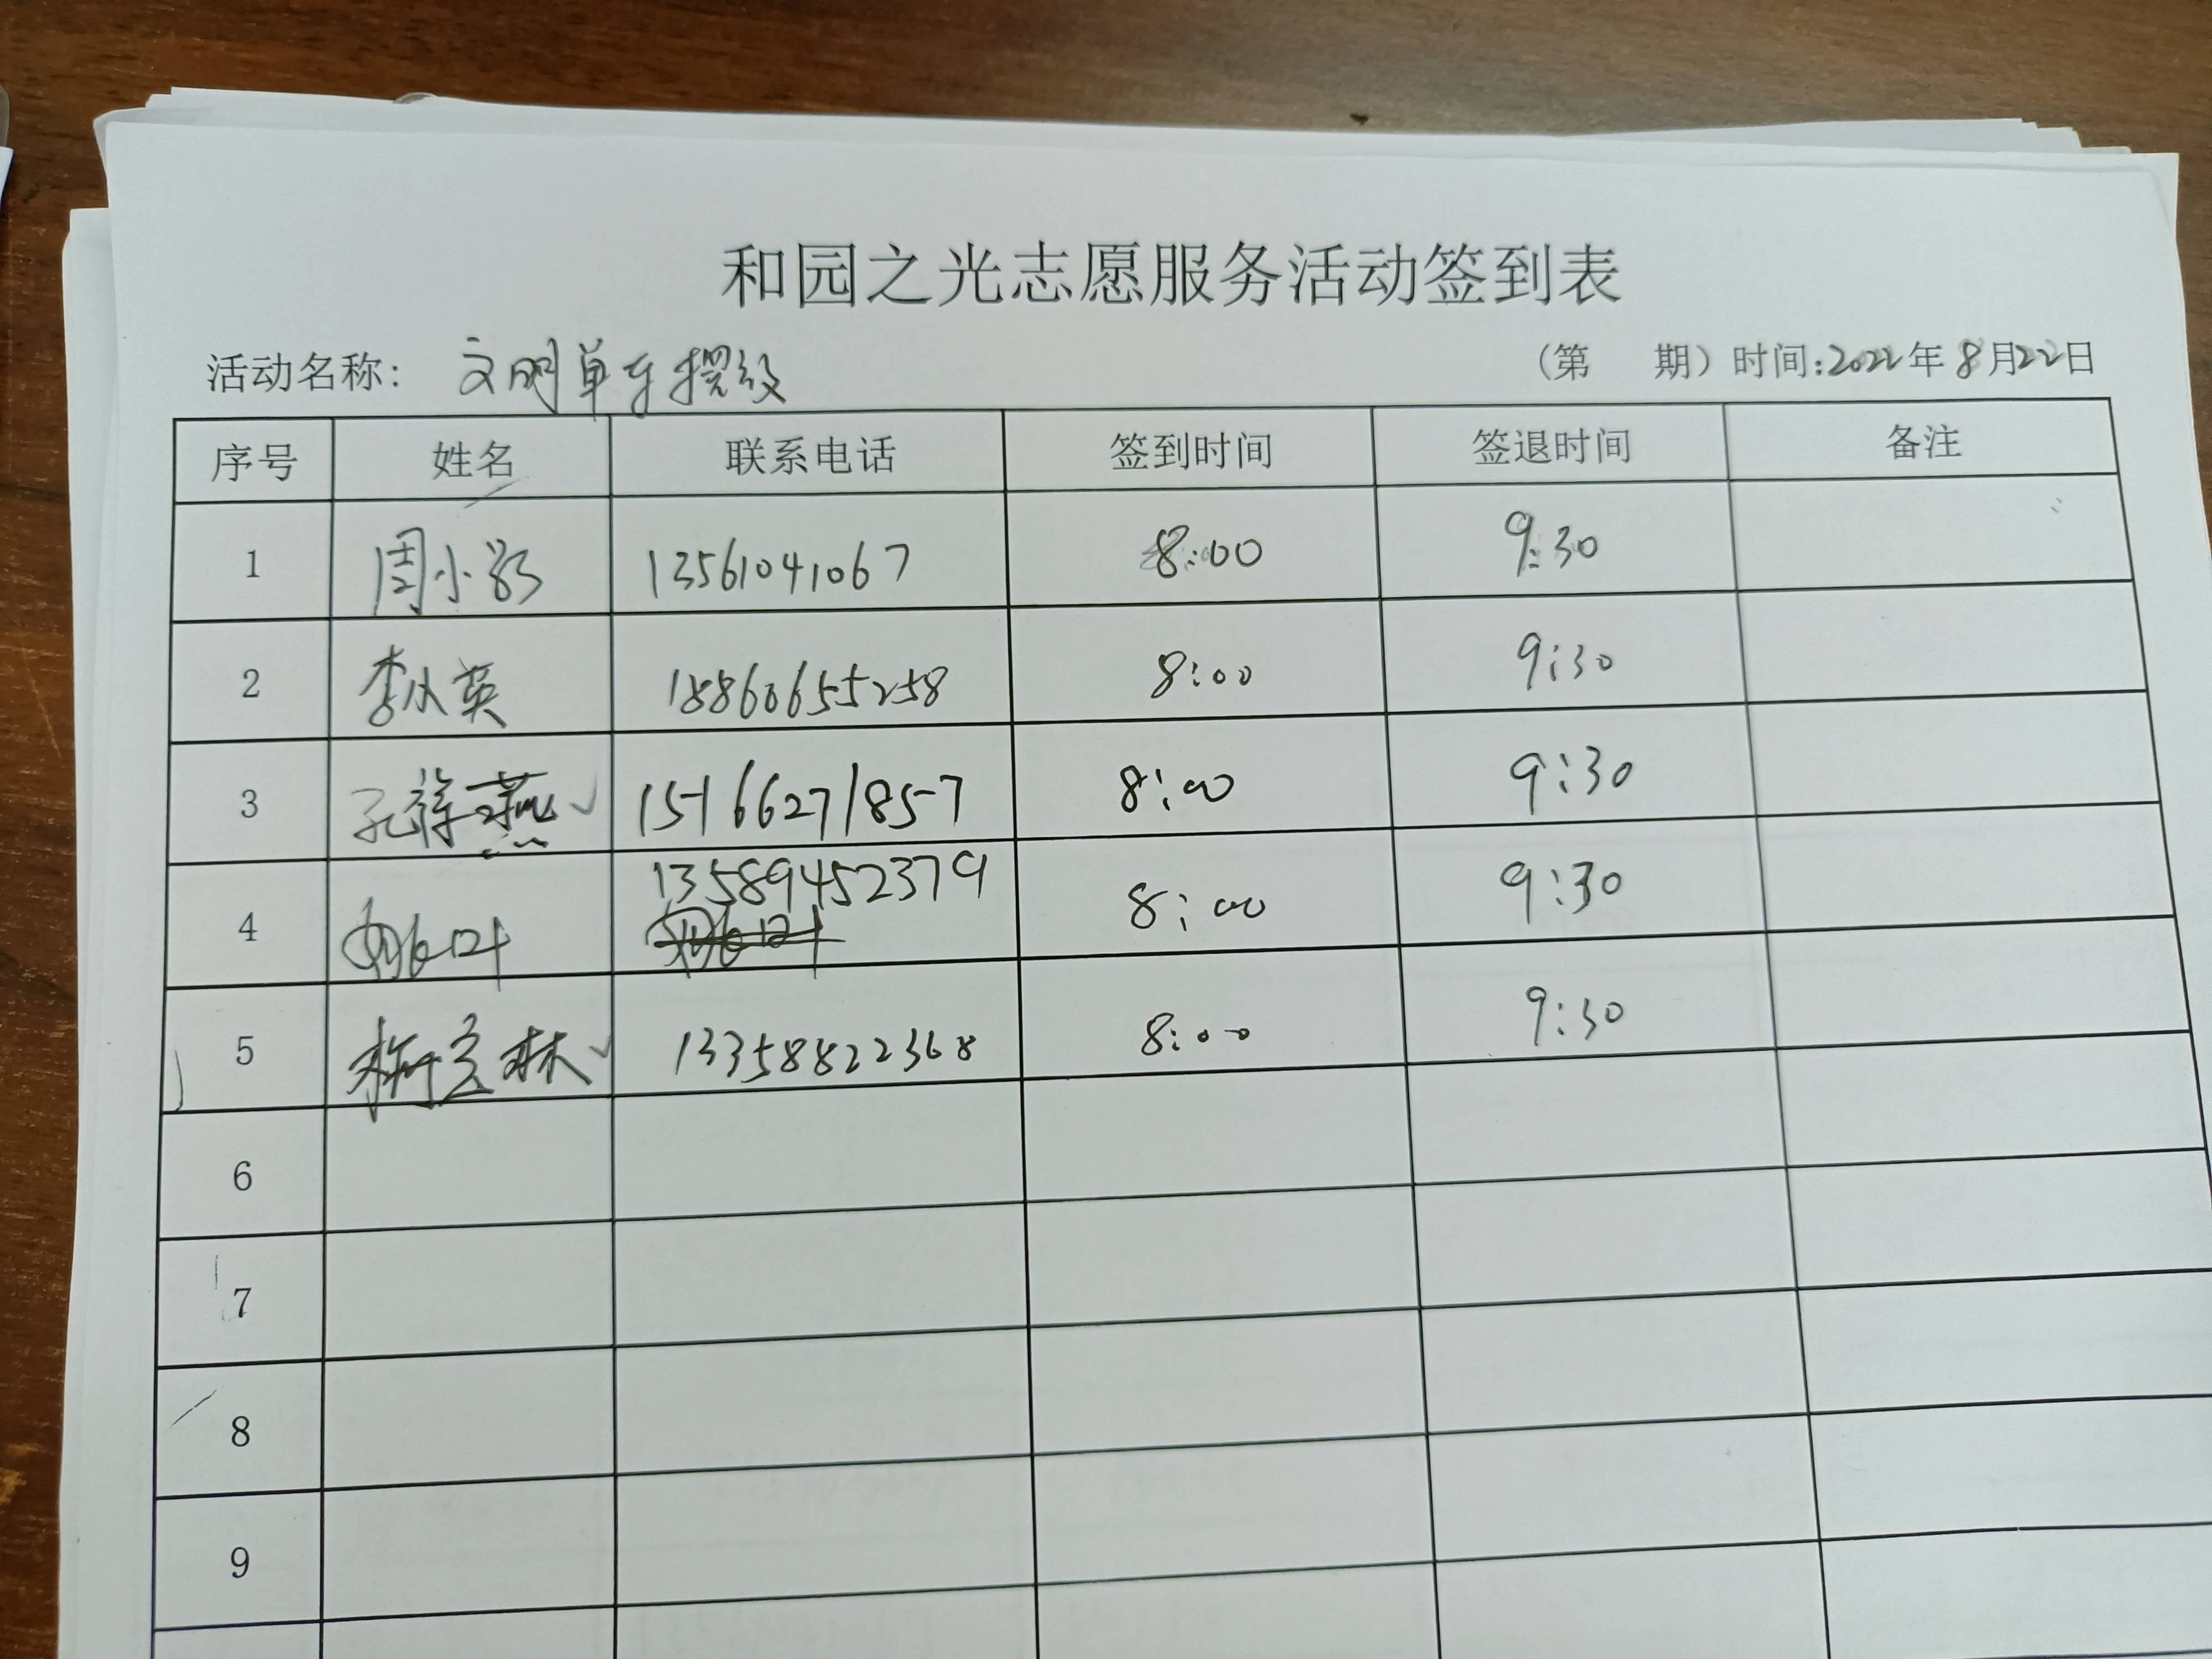 和园之光志愿服务活动签到表
活动名称: 文明单车摆放 (第 期) 时间:2022年8月22日
序号 姓名 联系电话 签到时间 签退时间 备注
1 周小 13561041067 8:00 9:30
2 李从英 18860655258 8:00 9:30
3 孔祥燕 15166271857 8:00 9:30
4 13589452379 8:00 9:30
5 林 13358822368 8:00 9:30
6
7
8
9